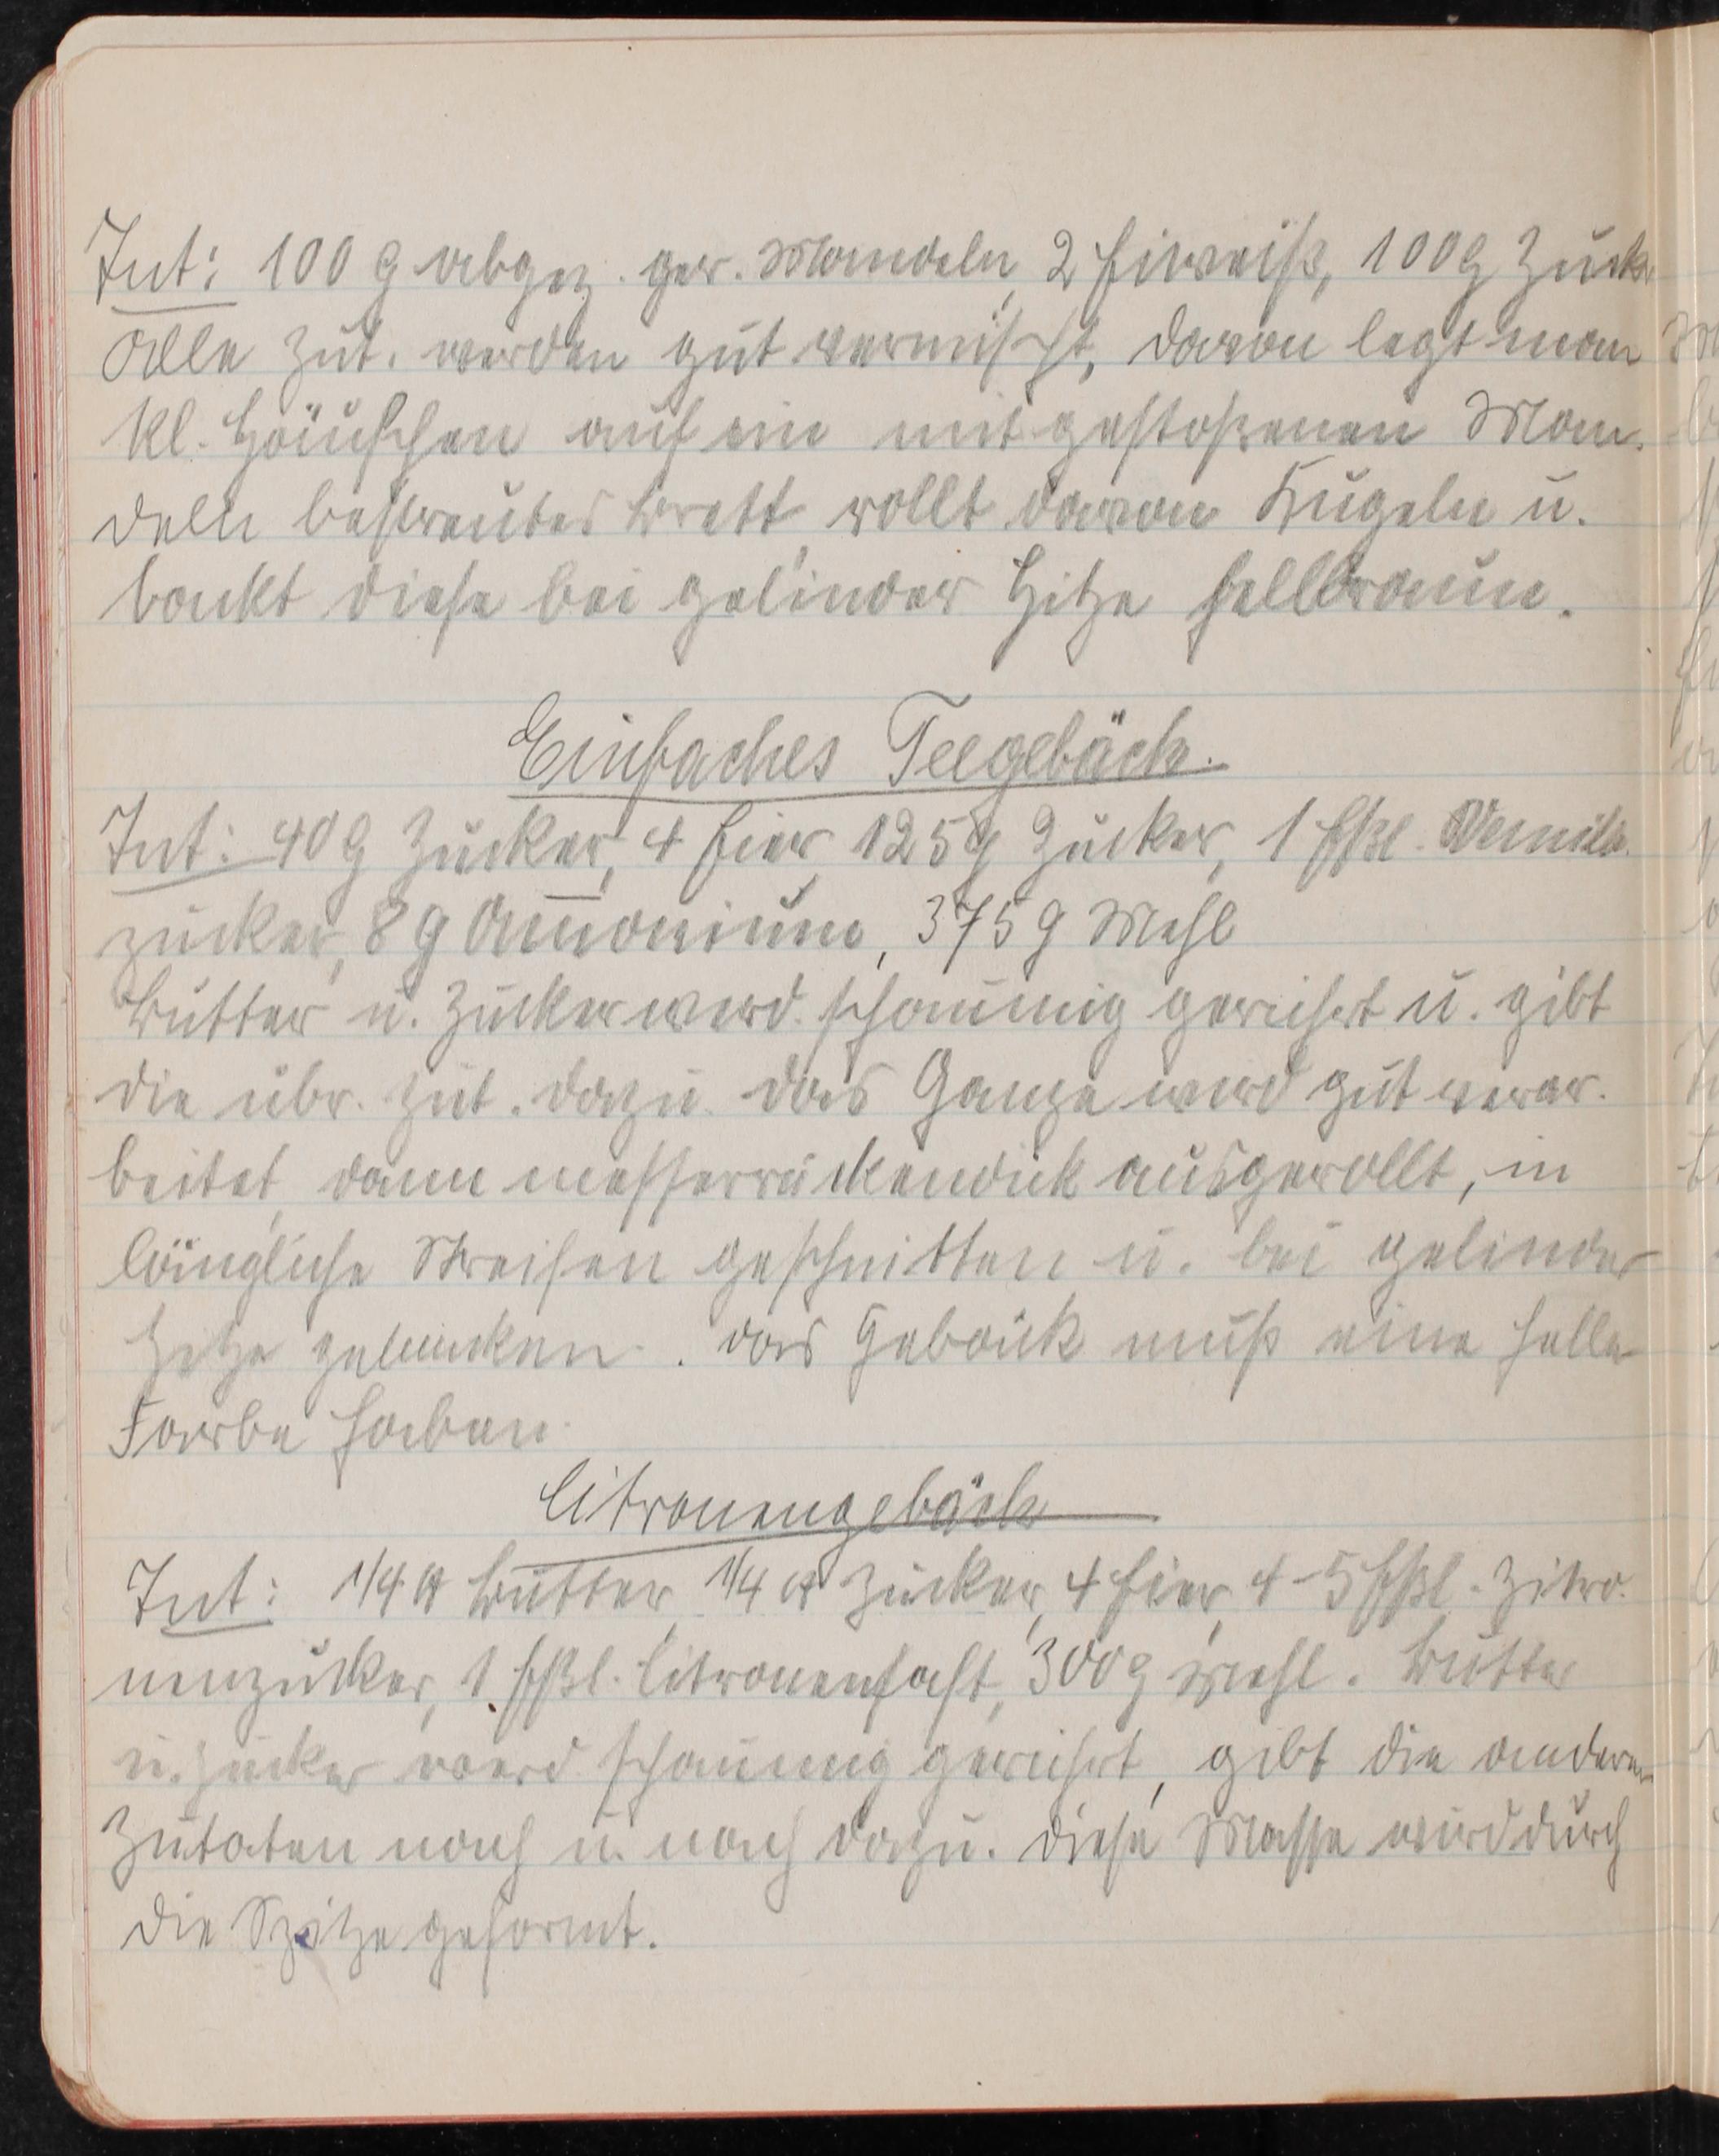 Zut: 100 g abgez. ger. Mandeln, 2 Eiweiß, 100 g Zucker
Alle Zut. werden gut vermischt, davon legt man
kl. Häufchen auf ein mit gestoßenen Man-
deln bestreutes Brett, rollt davon Kugeln u.
backt diese bei gelinder Hitze hellbraun.
Einfaches Teegebäck.
Zut: 40 g Zucker, 4 Eier, 125 g Zucker, 1 Eßl. Vanille-
zucker, 8 g Amonium, 375 g Mehl
Butter u. Zucker werd. schaumig gerührt u. gibt
die übr. Zut. dazu. das Ganze wird gut verar-
beitet, dann messerrückendick ausgerollt, in
längliche Streifen geschnitten u. bei gelinder
Hitze gebacken. das Gebäck muß eine helle
Farbe haben.
Citronengebäck
Zut: 1/4 ℔ Butter, 1/4 ℔ Zucker, 4 Eier, 4-5 Eßl. Zitro-
nenzucker, 1 Eßl. Citronensaft, 300 g Mehl. Butter
u. Zucker werd. schaumig gerührt, gibt die anderen
Zutaten nach u. nach dazu. diese Masse wird durch
die Spitze geformt.